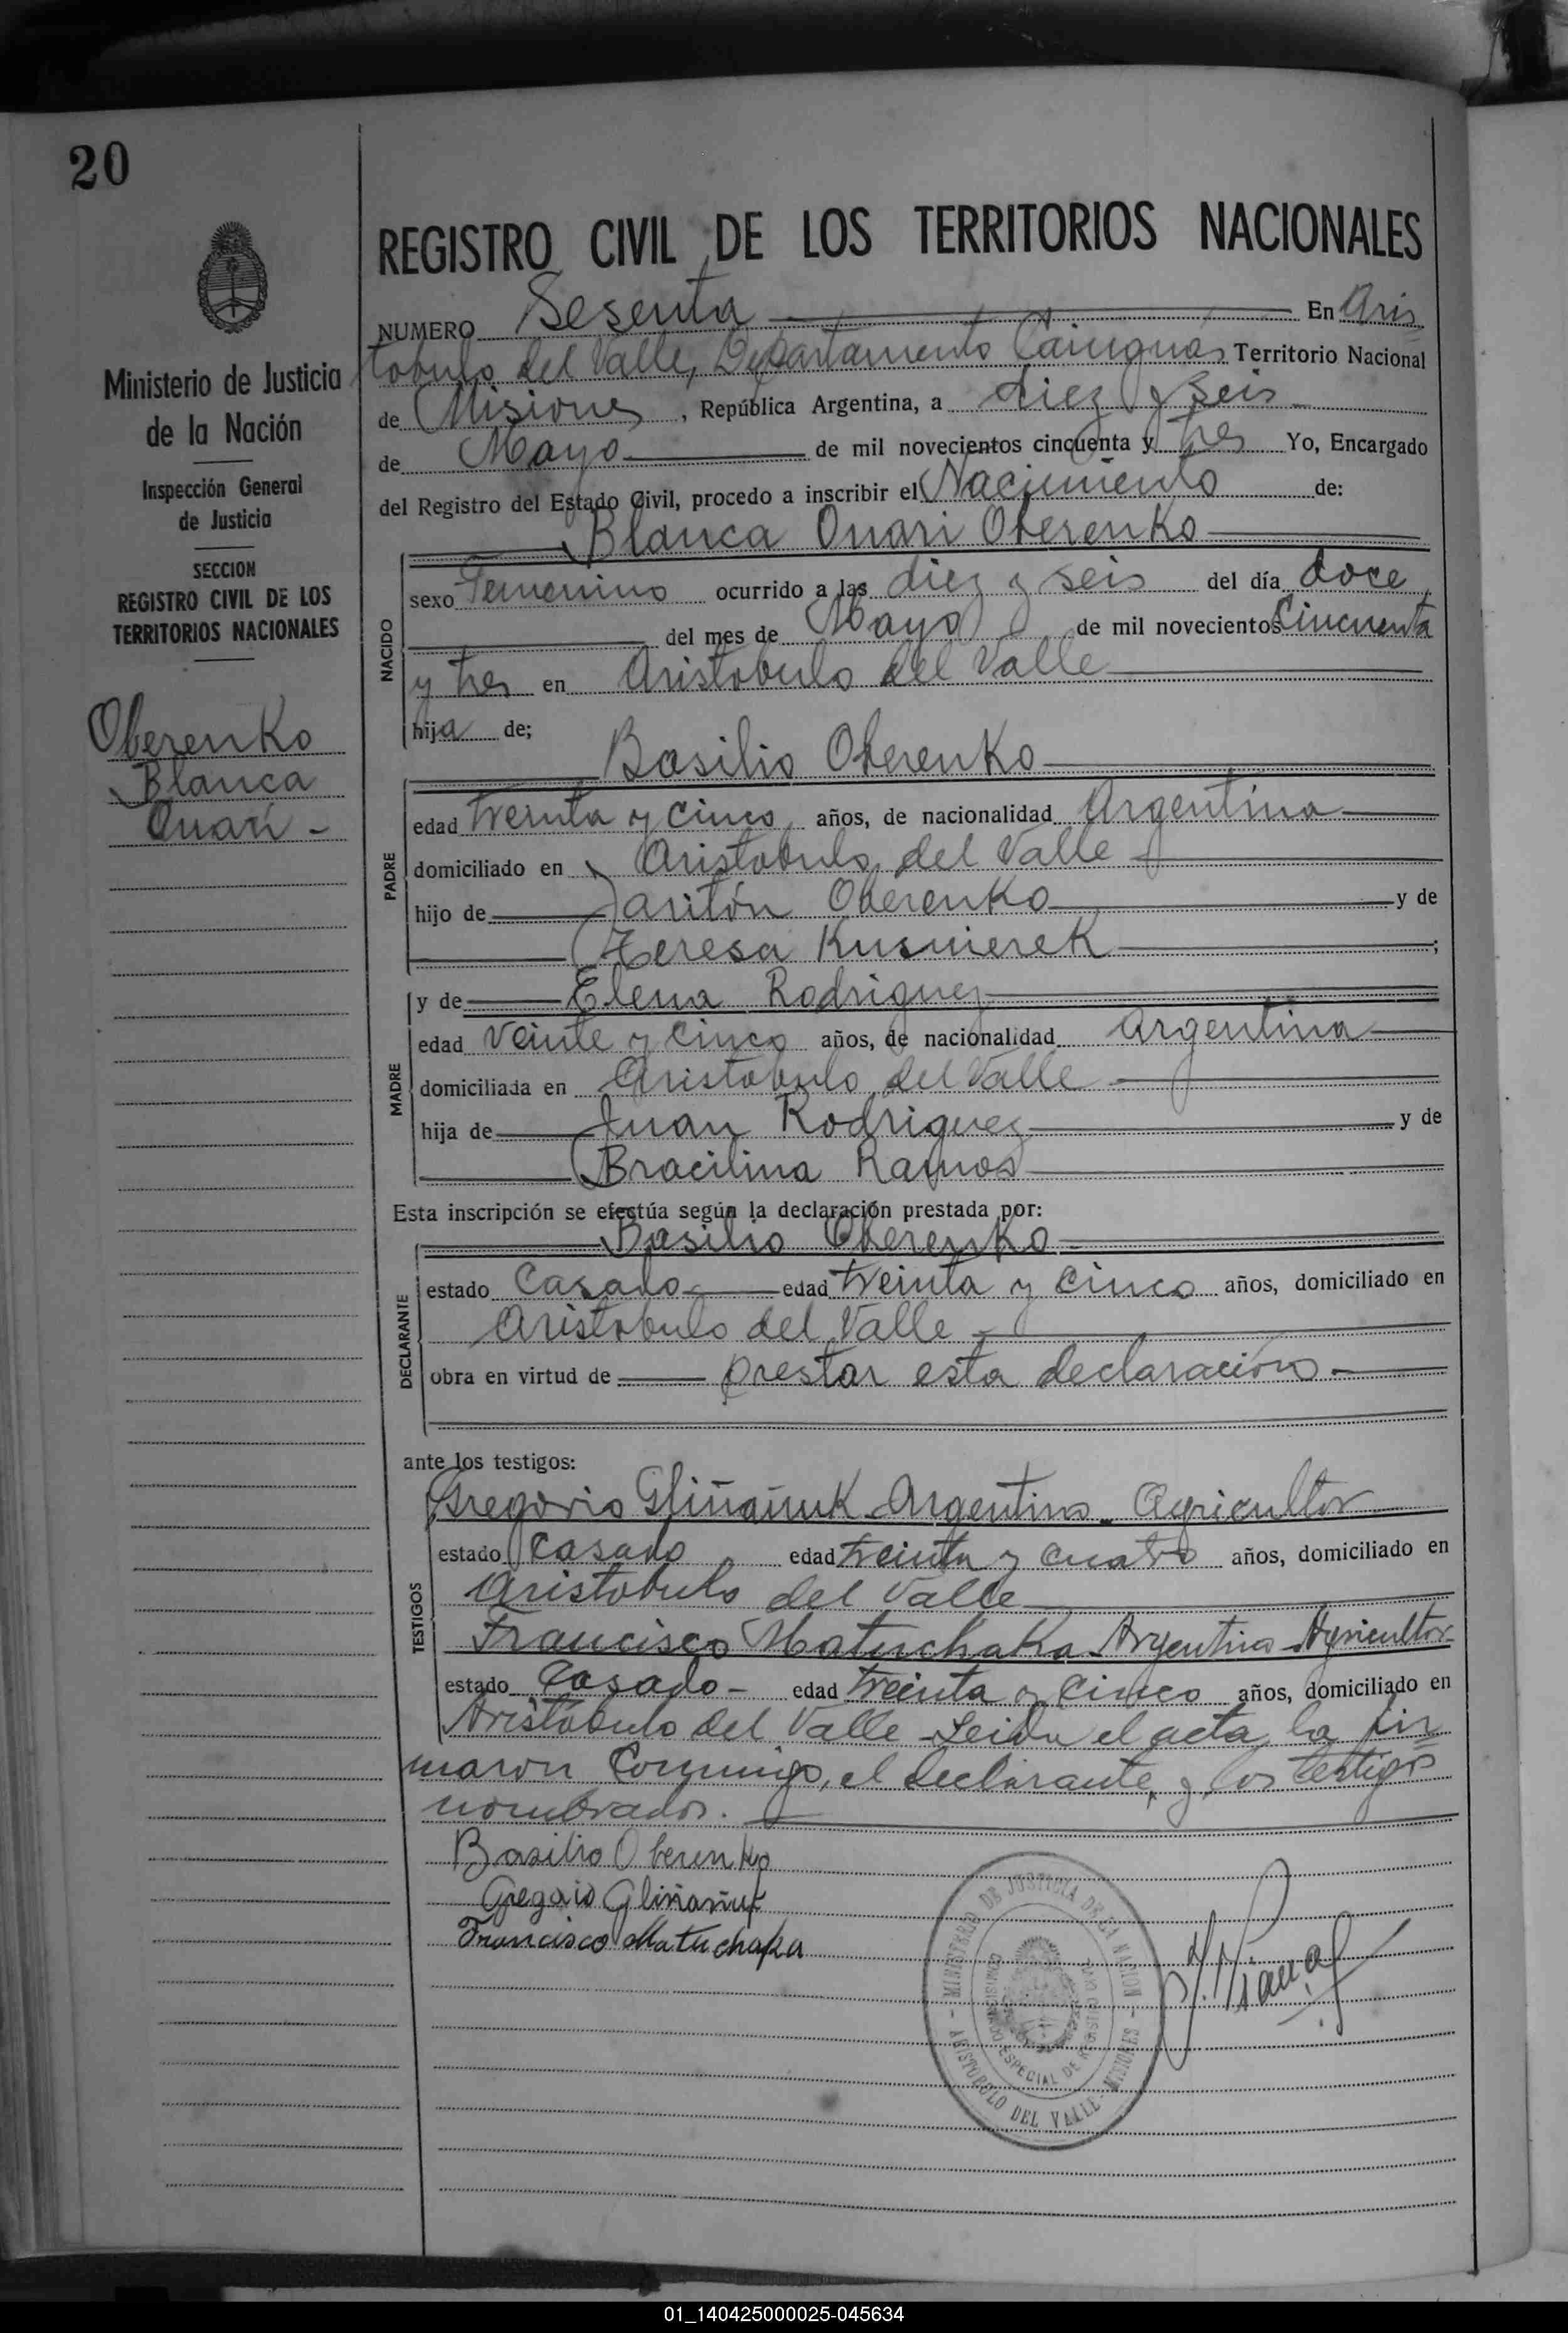 20
Ministerio de Justicia
de la Nación
Inspección General
de Justicia
SECCION
REGISTRO CIVIL DE LOS
TERRITORIOS NACIONALES
Oberenko
Blanca
Onari -
REGISTRO CIVIL DE LOS TERRITORIOS NACIONALES
NUMERO Sesenta En Aris
tobulo del Valle, Departamento Cainguas Territorio Nacional
de Misiones, República Argentina, a diez y seis
de Mayo de mil novecientos cincuenta y tres Yo, Encargado
del Registro del Estado Civil, procedo a inscribir el Nacimiento de:
Blanca Onari Oberenko
NACIDO
sexo Femenino ocurrido a las diez y seis del día doce
del mes de Mayo de mil novecientos Cincuenta
y tres en Aristobulo del Valle
hija de;
Basilio Oberenko
PADRE
edad treinta y cinco años, de nacionalidad Argentina
domiciliado en Aristobulo del Valle
hijo de Jaritón Oberenko y de
Teresa Kusmierek;
y de Elena Rodriguez
MADRE
edad veinte y cinco años, de nacionalidad argentina
domiciliada en Aristobulo del Valle
hija de Juan Rodriguez y de
Bracilina Ramos
Esta inscripción se efectúa según la declaración prestada por:
Basilio Oberenko
DECLARANTE
estado Casado edad treinta y cinco años, domiciliado en
Aristobulo del Valle
obra en virtud de prestar esta declaración
ante los testigos:
Gregorio Gliñañuk Argentino Agricultor
TESTIGOS
estado Casado edad treinta y cuatro años, domiciliado en
Aristobulo del Valle
Francisco Matuchaka Argentino Agricultor
estado Casado - edad treinta y cinco años, domiciliado en
Aristobulo del Valle Leida el acta la fir
maron Conmigo, el declarante y los testigos
nombrados.
Basilio Oberenko
Gregorio Gliñañuk
Francisco Matuchaka
MINISTERIO DE JUSTICIA DE LA NACION
ESPECIAL DE
ARISTOBULO DEL VALLE - MISIONES
01_140425000025-045634